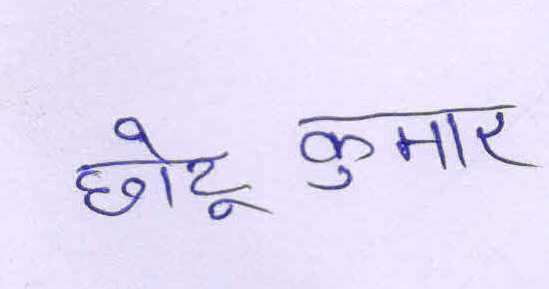 छोटू कुमार